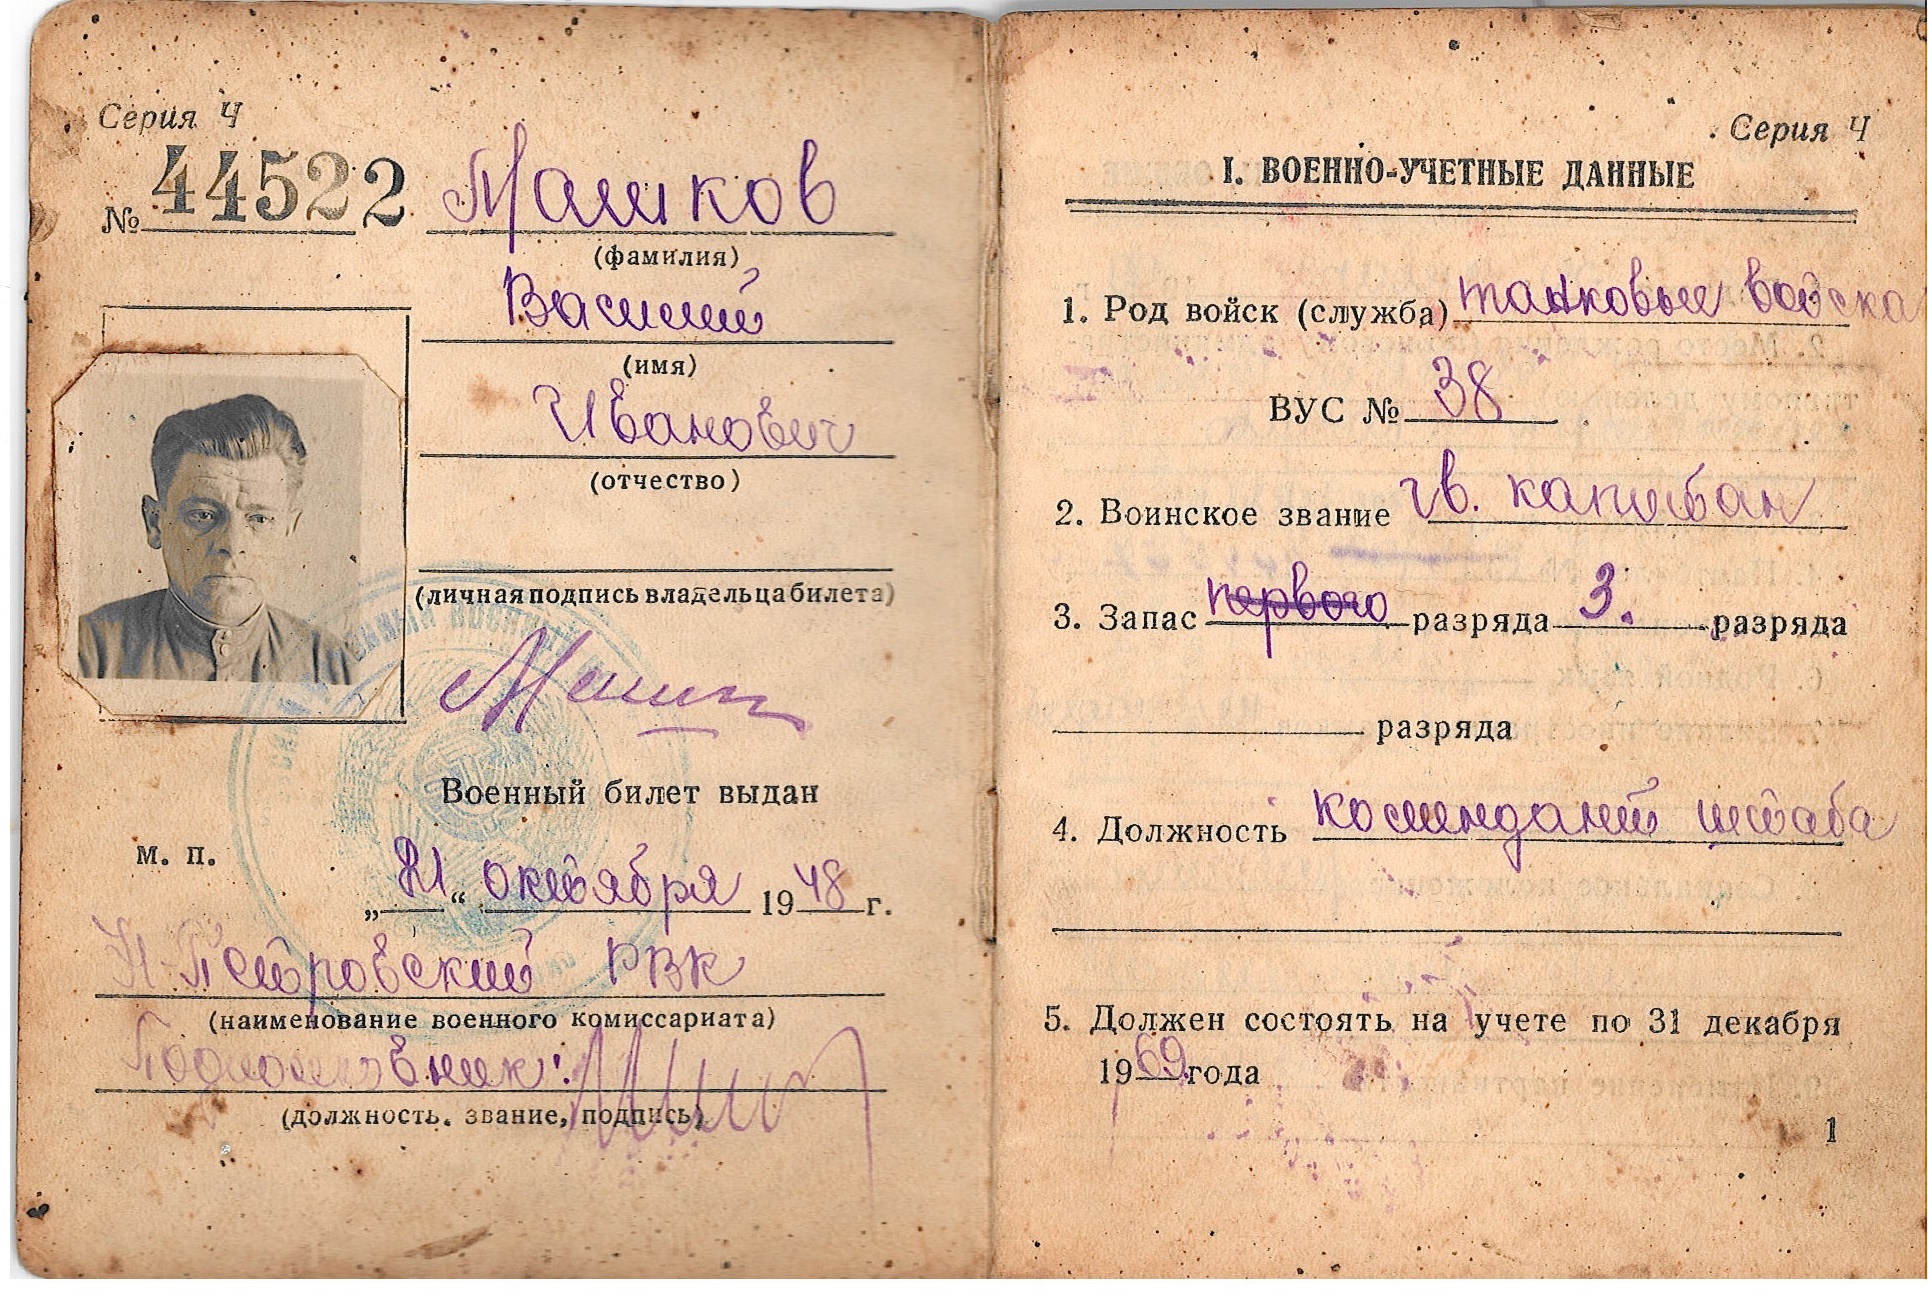 Серия Ч
№ 445222
Машков
(фамилия)
Василий
(имя)
Иванович
(отчество)
(личная подпись владельца билета)
Военный билет выдан
м. п.
„21“ октября 1948 г.
Н-Петровский РВК
(наименование военного комиссариата)
Подполковник:
(должность. звание, подпись)
Серия Ч
I. ВОЕННО-УЧЕТНЫЕ ДАННЫЕ
1. Род войск (служба) танковые войска
ВУС № 38
2. Воинское звание гв. капитан
3. Запас первого разряда 3. разряда
разряда
4. Должность комендант штаба
5. Должен состоять на учете по 31 декабря
1969 года
1